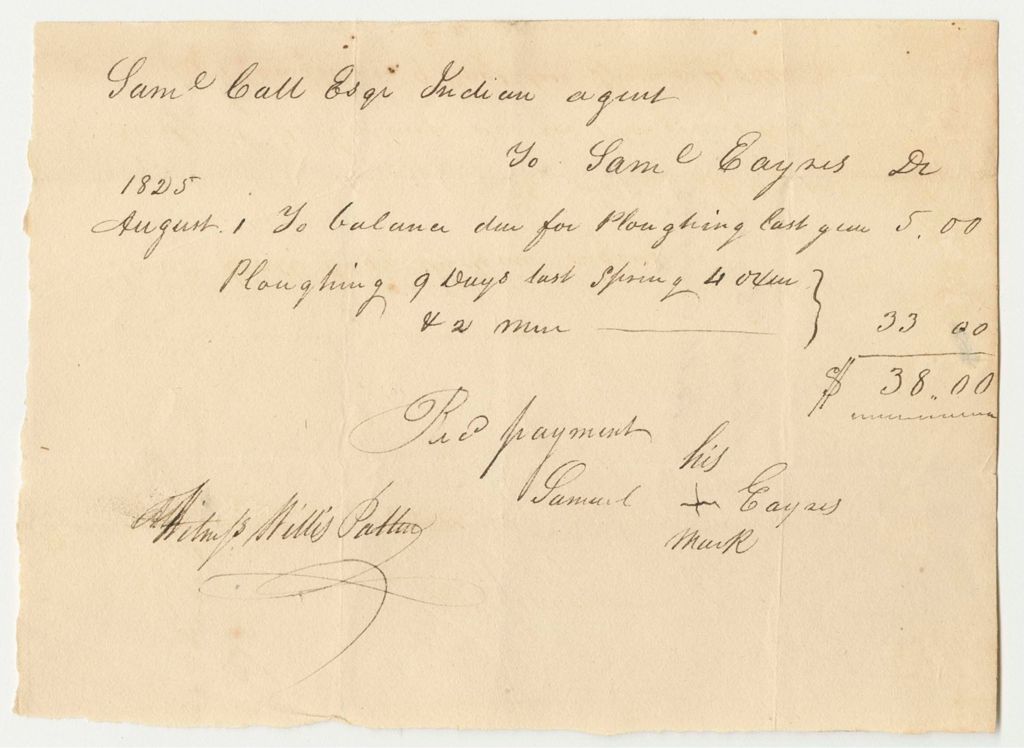 Saml Call Esqr Indian agent
To Saml Eayres Dr
1825
August. 1 To balance due for Ploughing last year 5.00
Ploughing 9 Days last Spring 4 Oxen
& 2 men 33 00
$ 38.00
Recd payment
his
Samuel + Eayres
mark
Witness Willis Patten